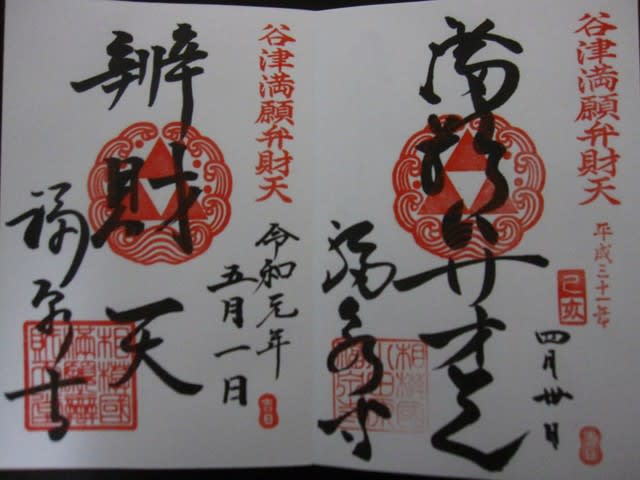 谷津満願弁財天
平成三十一年
己亥
四月卅日
満願弁才天
福泉寺
谷津満願弁財天
令和元年
五月一日
吉日
辨財天
福泉寺